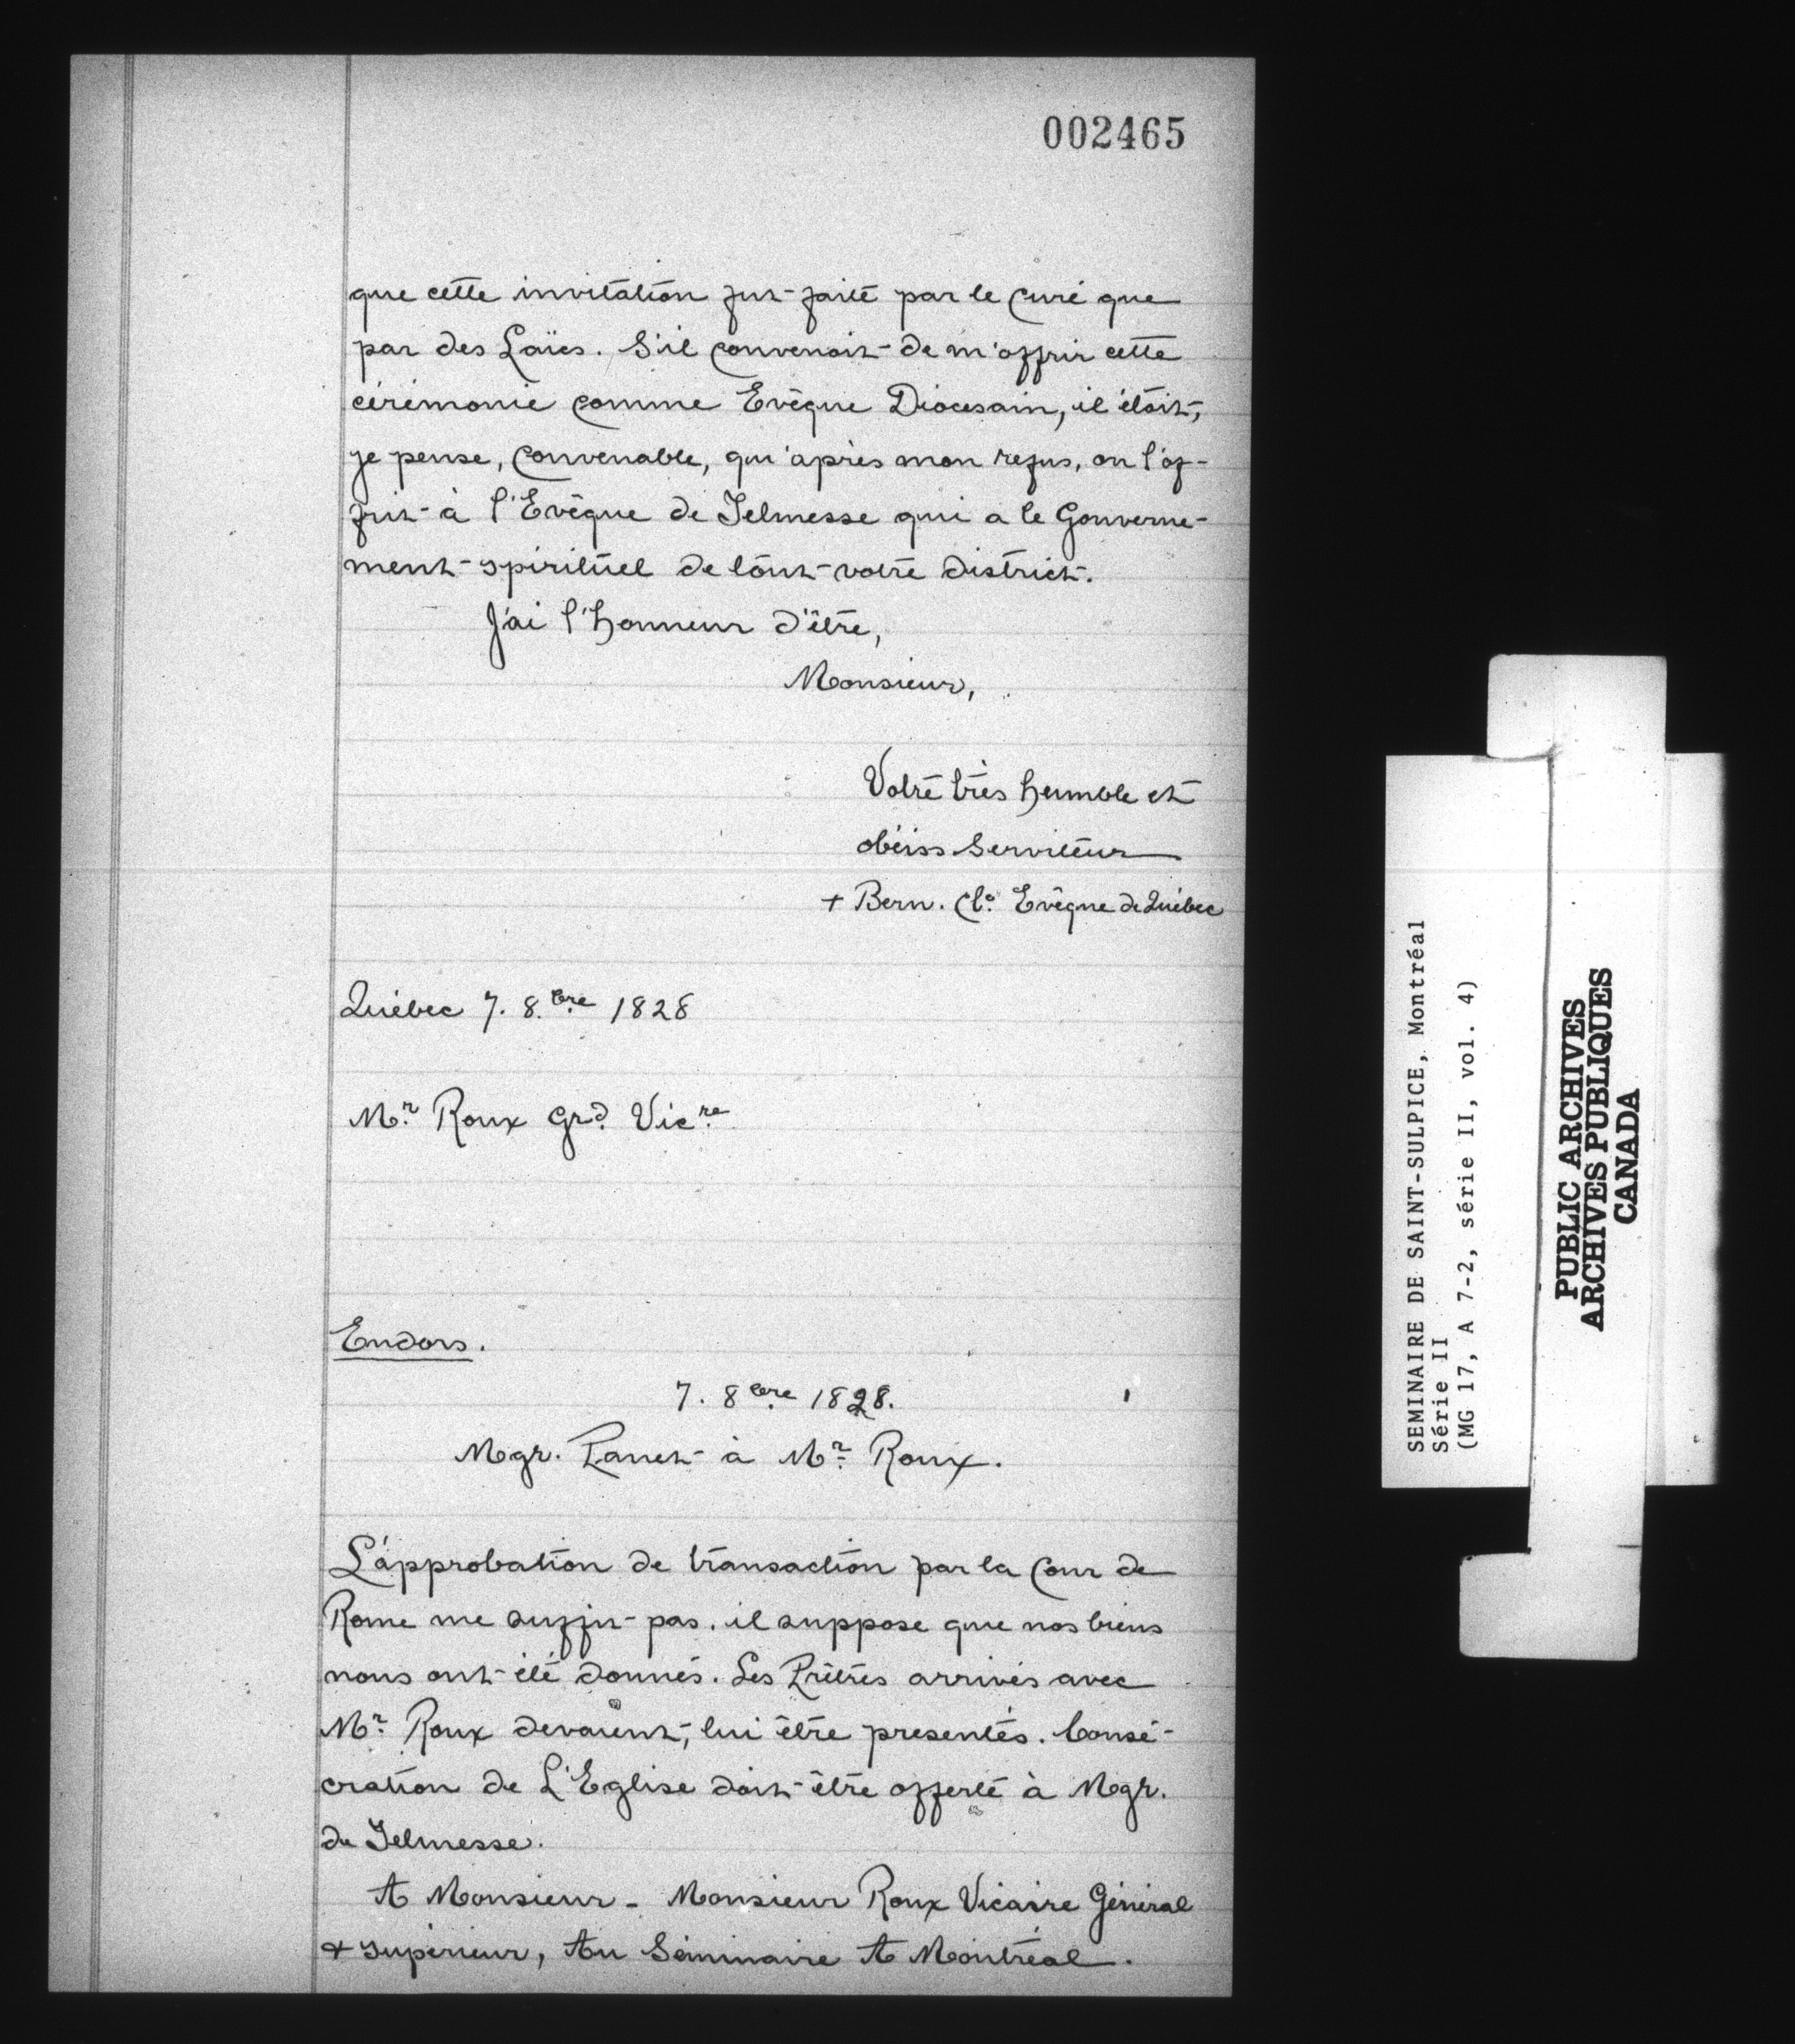 002465
que cette invitation fut faite par le Curé que
par des Laïcs. S'il convenoit de m'offrir cette
cérémonie comme Evêque Diocesain, il étoit,
je pense, convenable, qu'après mon refus, on l'of-
frit à l'Evêque de Telmesse qui a le Gouverne-
ment spirituel de tout votre district.
J'ai l'honneur d'être,
Monsieur,
Votre très humble et
obéiss serviteur
+ Bern. Cl. Evêque de Québec
Québec 7. 8.bre 1828
Mr. Roux Grd. Vic.re
Endors.
7. 8bre 1828.
Mgr. Panet à Mr. Roux.
L'approbation de transaction par la Cour de
Rome me suffit pas. il suppose que nos biens
nous ont été donnés. Les Prêtres arrivés avec
Mr. Roux devaient, lui être presentés. Consé-
cration de L'Eglise doit être offerte à Mgr.
de Telmesse.
A Monsieur - Monsieur Roux Vicaire Général
& supérieur, Au Séminaire A Montréal.
SEMINAIRE DE SAINT-SULPICE, Montréal
Série II
(MG 17, A 7-2, série II, vol. 4)
PUBLIC ARCHIVES
ARCHIVES PUBLIQUES
CANADA